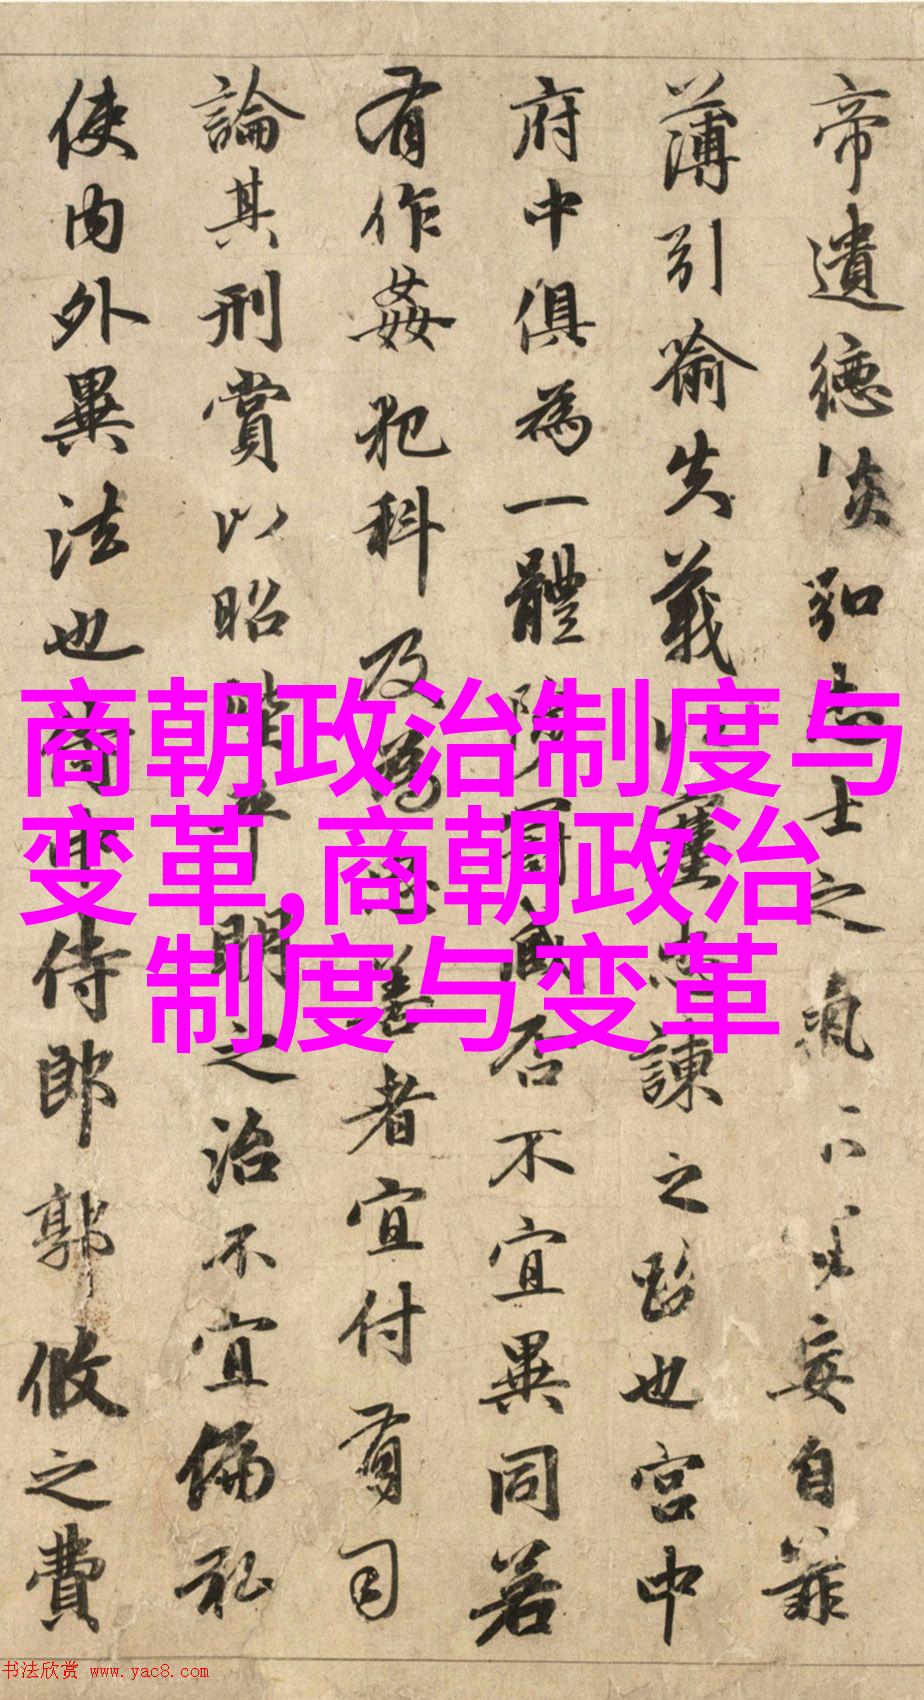 帝遺德恢弘志士之氣不宜妄自菲
薄引喻失義以塞忠諫之路也宮中
府中俱為一體陟罰臧否不宜異同若
有作姦犯科及為忠善者宜付有司
論其刑賞以昭陛下平明之治不宜偏私
使內外異法也侍中侍郎郭攸之費
商朝政治制度与
变革,商朝政治
制度与变革
书法欣赏 www.yac8.com